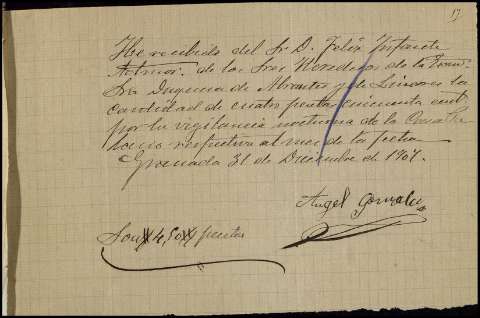 17
He recibido del Sr. D. Felix Infante
Admor. de los Sres Herederos de la Exma.
Sra Duquesa de Abrantes y de Linares la
cantidad de cuatro pesetas cincuenta cents
por la vigilancia nocturna de la
respectiva al mes de la fecha
Granada 31 de Diciembre de 1907.
Angel Gonzalez
Son 4,50 pesetas